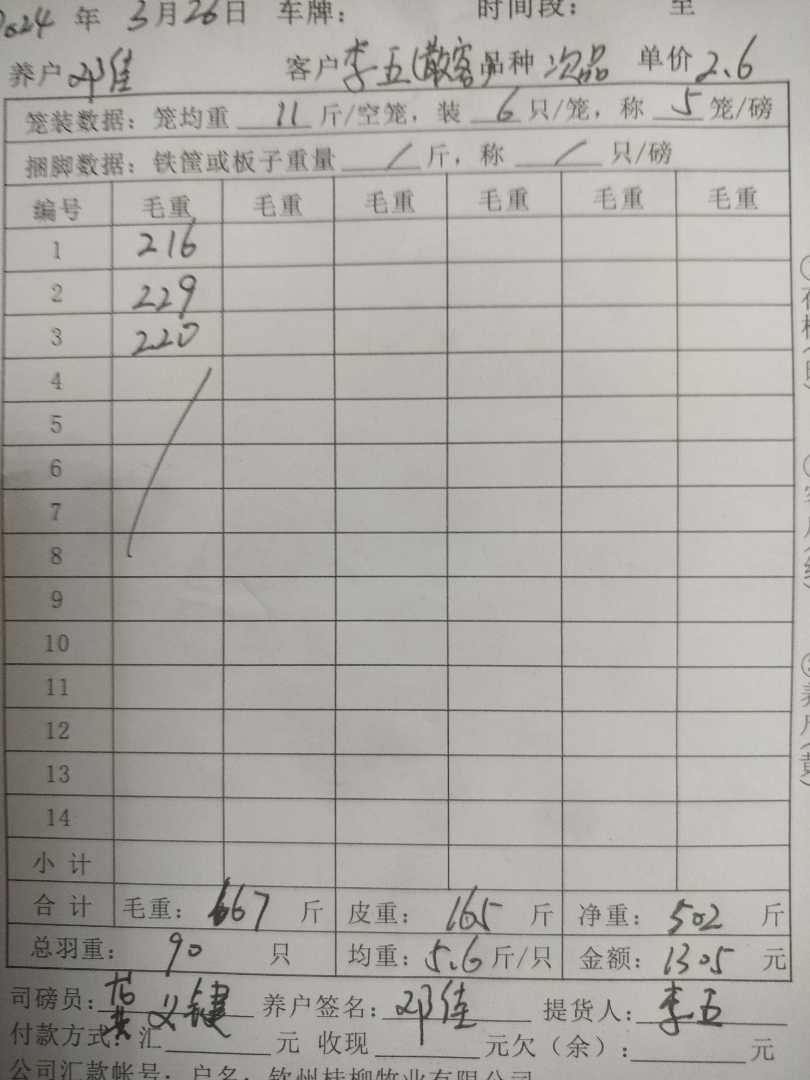 2024 年 3月26日 车牌： 时间段： 至
养户 邓佳 客户 李五(散客) 品种 次品 单价 2.6
笼装数据：笼均重 11 斤/空笼，装 6 只/笼，称 5 笼/磅
捆脚数据：铁筐或板子重量 / 斤，称 / 只/磅
编号 毛重 毛重 毛重 毛重 毛重 毛重
1 216
2 229
3 220
4
5
6
7
8
9
10
11
12
13
14
小 计
合 计 毛重：667 斤 皮重：165 斤 净重：502 斤
总羽重：90 只 均重：5.6 斤/只 金额：1305 元
司磅员：黄义键 养户签名：邓佳 提货人：李五
付款方式：汇 元 收现 元欠（余）： 元
公司汇款帐号：户名：钦州桂柳牧业有限公司